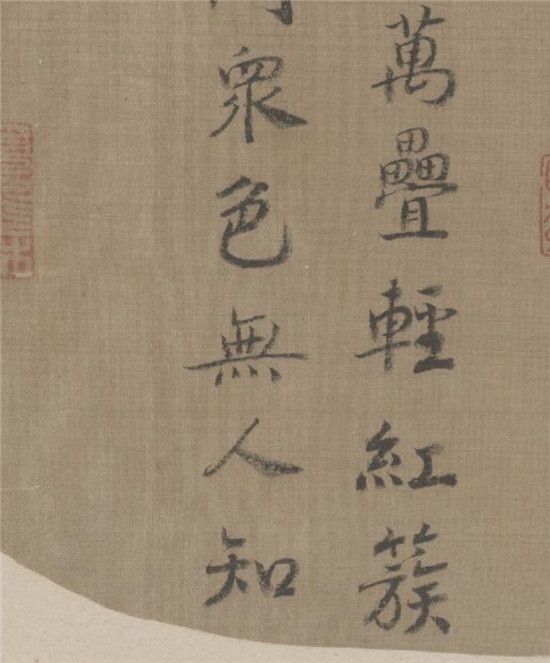 萬疊輕紅簇
眾色無人知